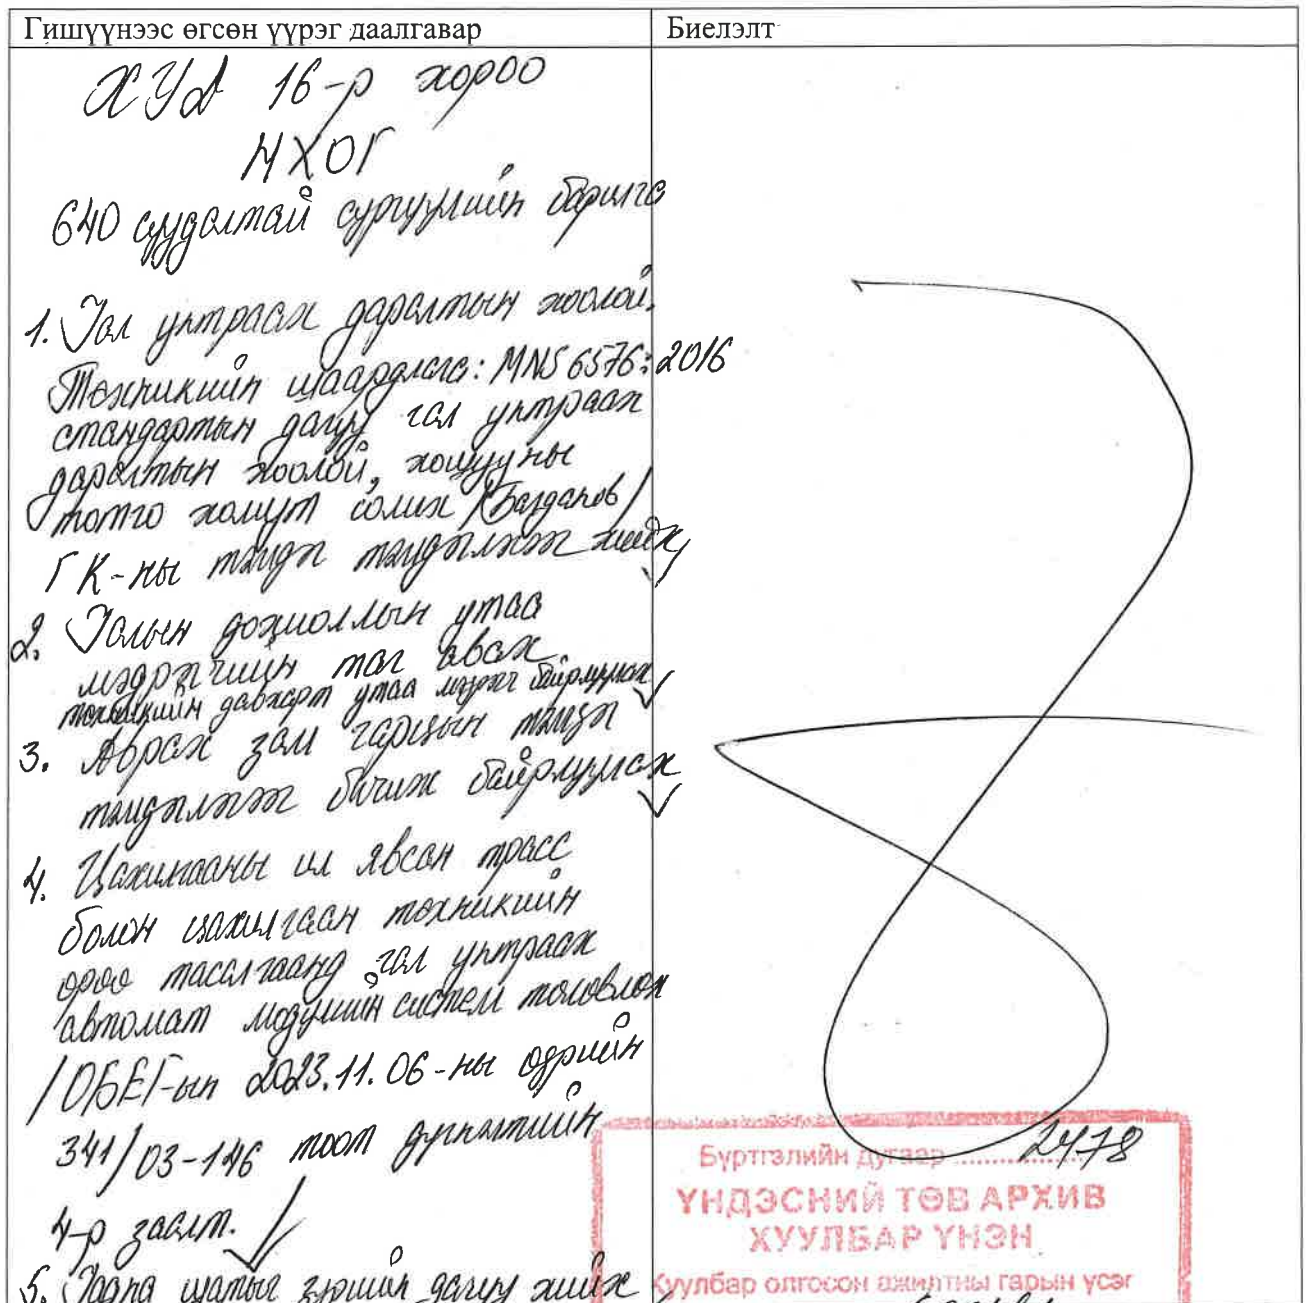 Гишүүнээс өгсөн үүрэг даалгавар
Биелэлт
ХУД 16-р хороо
НХОГ
640 суудалтай сургуулийн барилга
1. Гал унтраах даралтын хоолой.
Техникийн шаардлага: MNS 6576:2016
стандартын дагуу гал унтраах
даралтын хоолой, хошууны
холгт солих /Богданов/
ГК-ны тэмдэг тэмдэглэгээ хийх
2. Галын дохиоллын утаа
мэдрэгчийн таг авах
техникийн давхарт утаа мэдрэгч байрлуулах
3. Аврах зам гарцын тэмдэг
тэмдэглэгээ бичиж байрлуулах
4. Цахилгааны ил явсан трасс
болон цахилгаан техникийн
өрөө тасалгаанд гал унтраах
автомат модулийн систем төлөвлөх
/ОБЕГ-ын 2023.11.06-ны өдрийн
341/03-146 тоот дүгнэлтийн
4-р заалт.
5. Гадна шатыг зургийн дагуу хийх
Бүртгэлийн дугаар ........ 2478
ҮНДЭСНИЙ ТӨВ АРХИВ
ХУУЛБАР ҮНЭН
Хуулбар олгосон ажилтны гарын үсэг